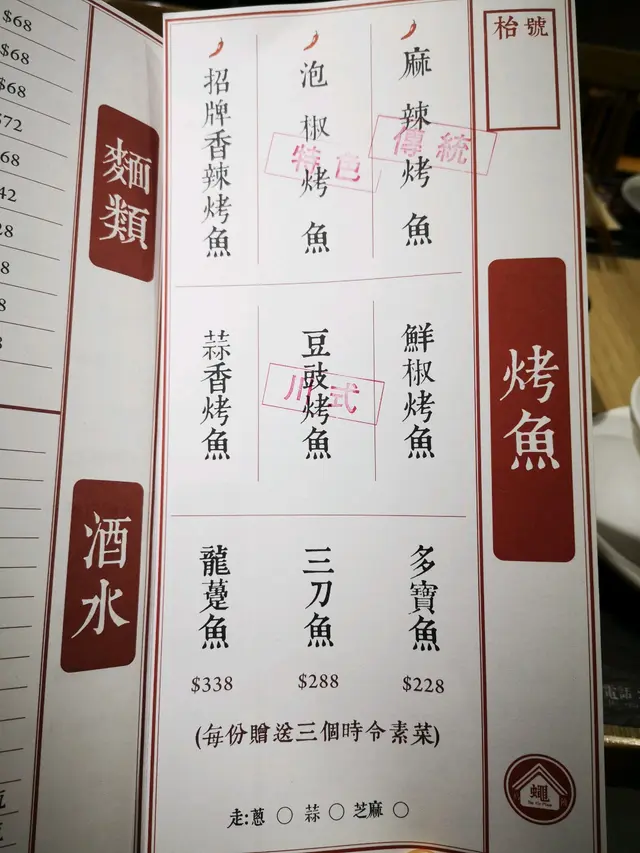 枱號
烤魚
麻辣烤魚
傳統
泡椒烤魚
特色
招牌香辣烤魚
鮮椒烤魚
豆豉烤魚
川式
蒜香烤魚
多寶魚
$228
三刀魚
$288
龍躉魚
$338
(每份贈送三個時令素菜)
走:蔥 ○ 蒜 ○ 芝麻 ○
蠅
麵類
酒水
$68
$68
$68